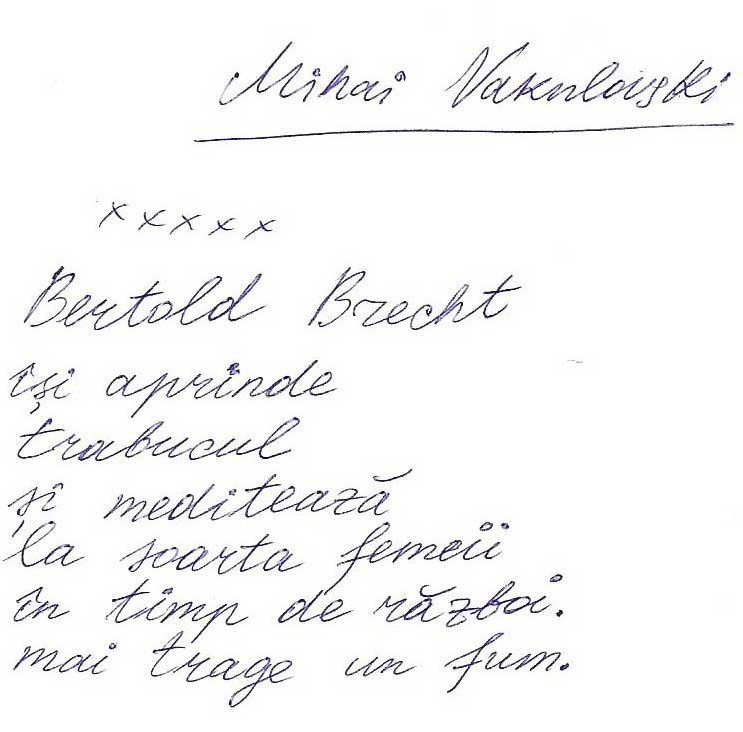 Mihai Vakulovski
x x x x x
Bertold Brecht
îşi aprinde
trabucul
şi meditează
la soarta femeii
în timp de război.
mai trage un fum.